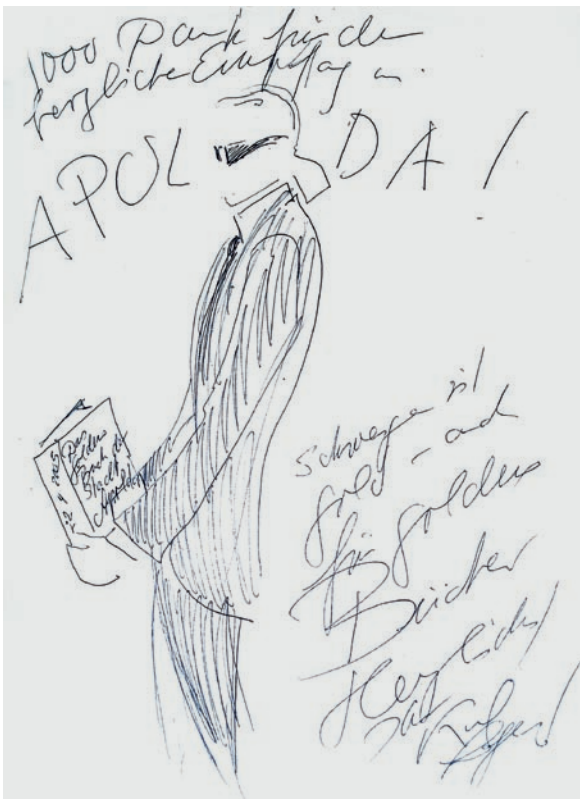 1000 Dank für den
herzlichen Empfang in
APOLDA!
Das
Goldene
Buch der
Stadt
Apolda
Schweigen ist
Gold – auch
für goldene
Bücher
Herzlichst